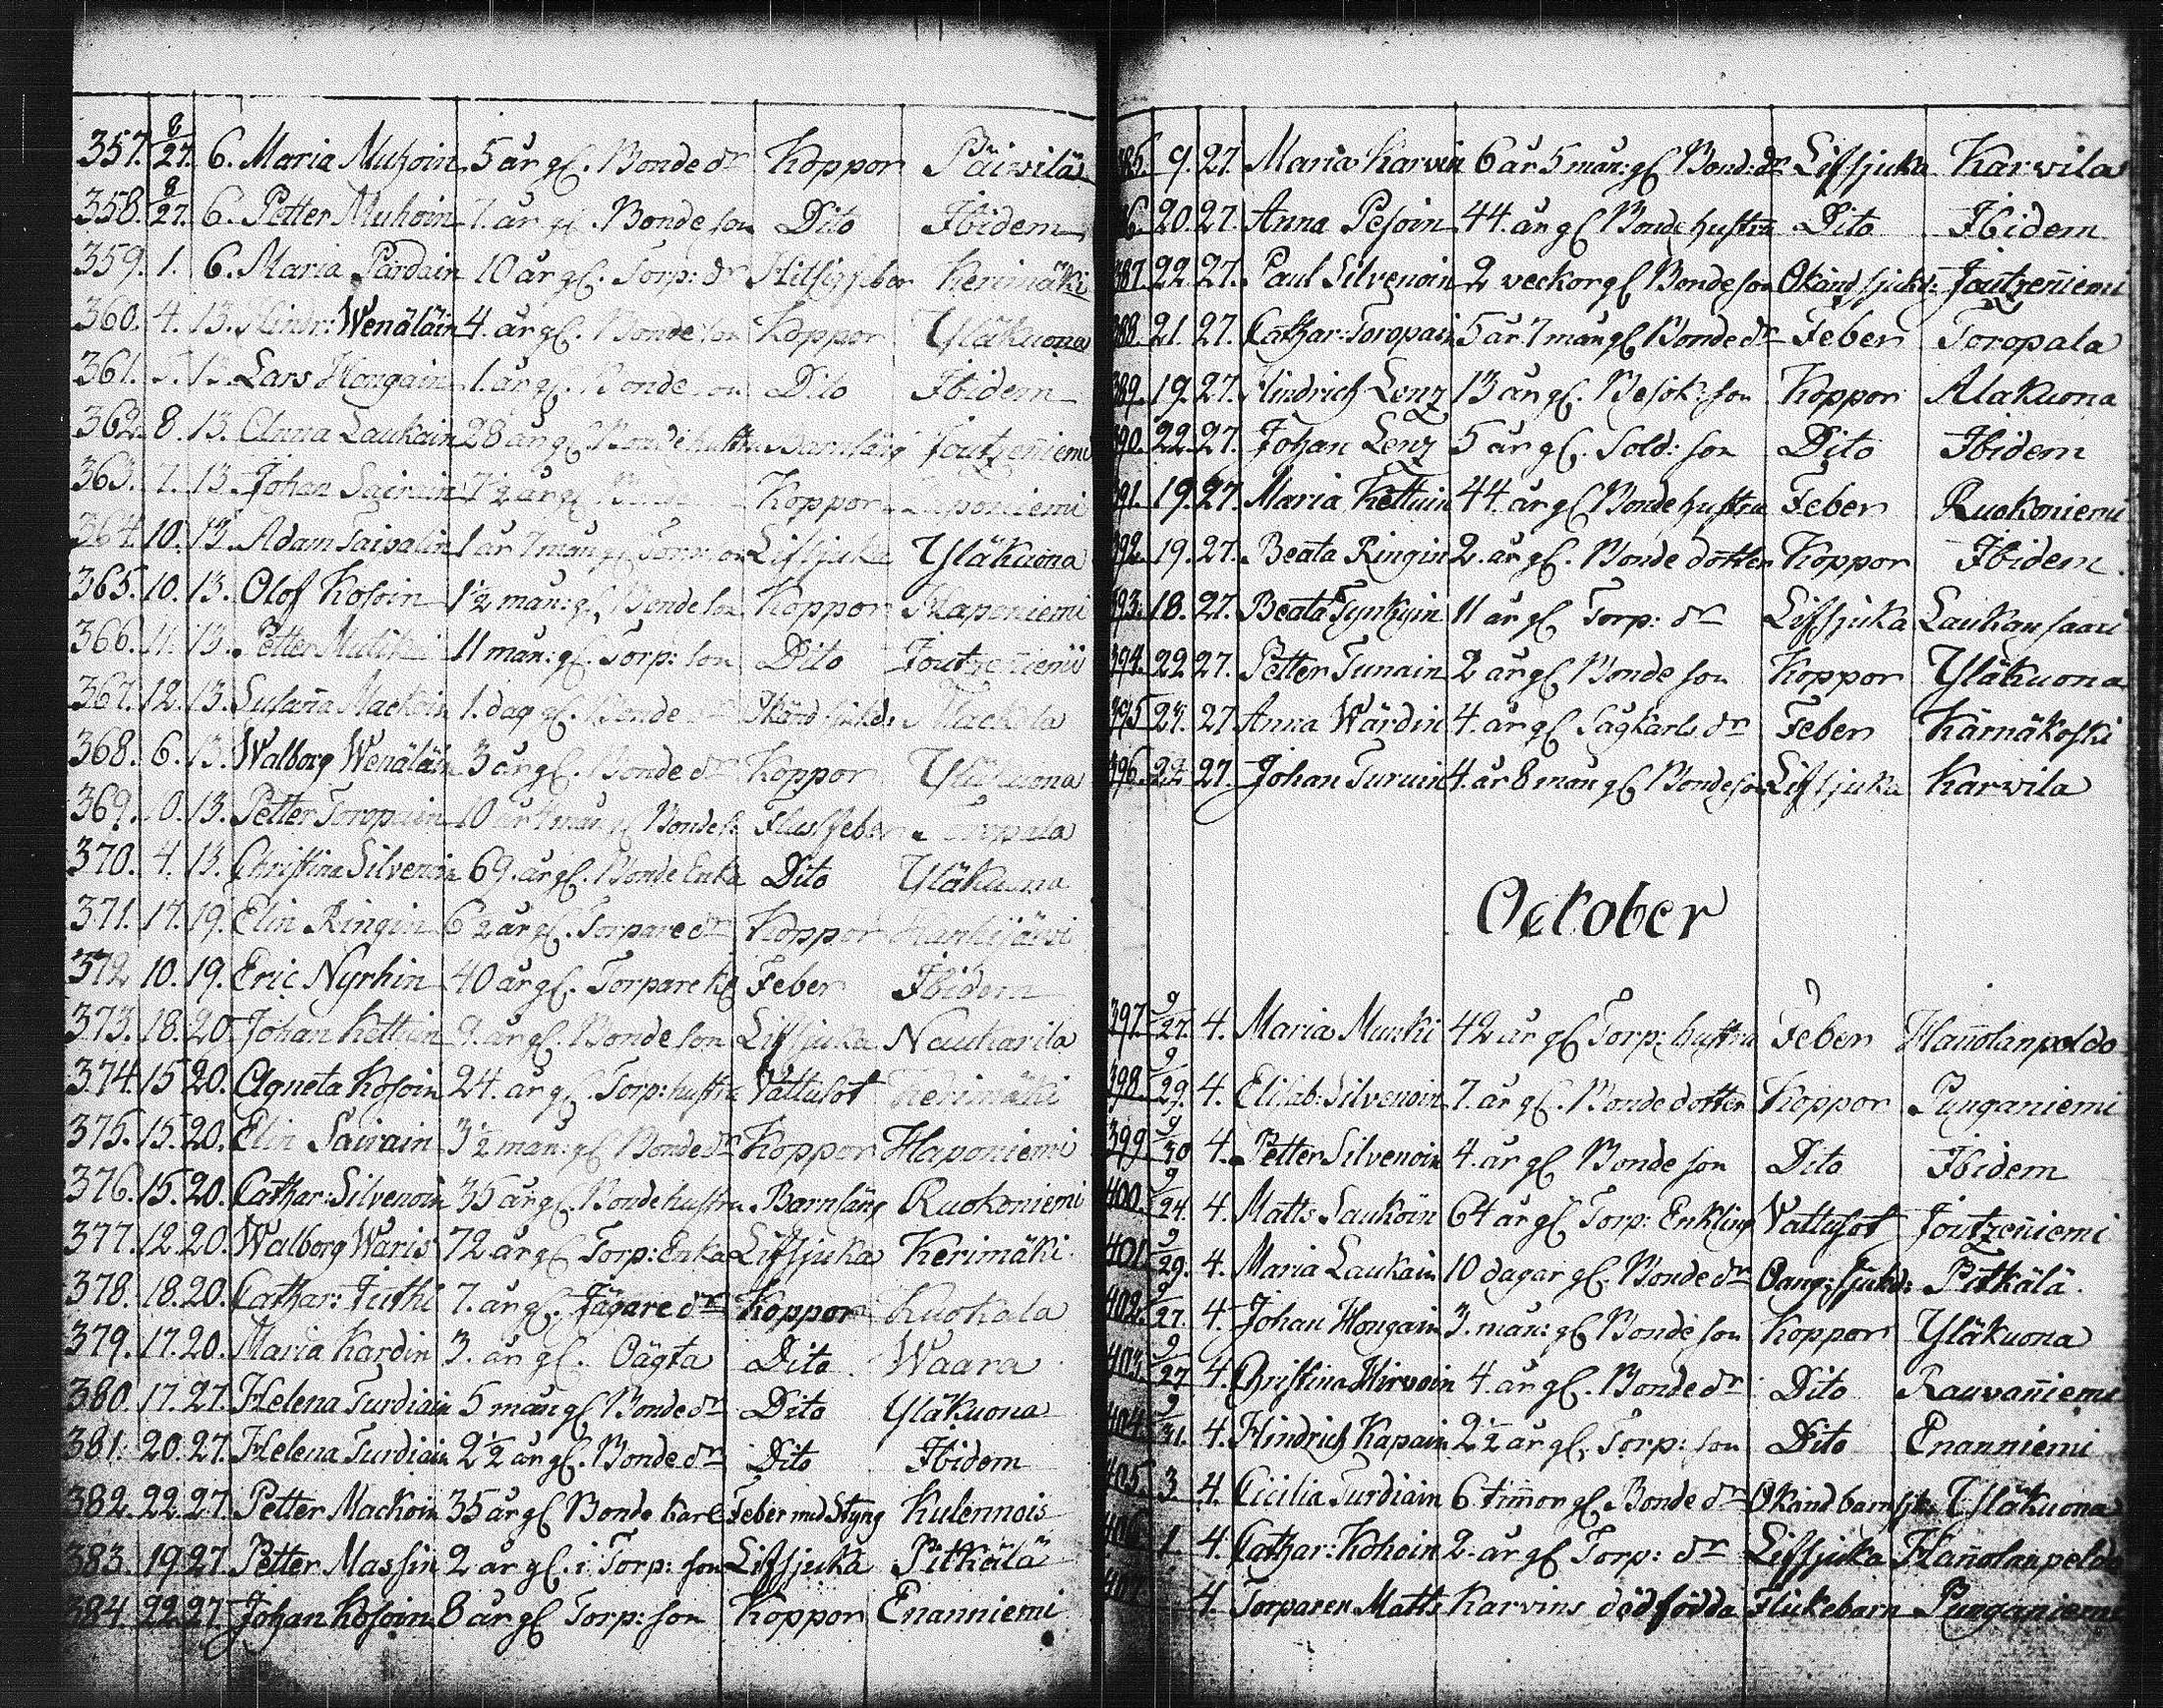 357. 8/27. 6. Maria Muhoin 5 år gl. Bonde dr Koppor Päivilä
358. 8/27. 6. Petter Muhoin 7. år gl. Bonde son Dito Ibidem
359. 1. 6. Maria Pardain 10 år gl. Torp: dr Hitsigfeber Kerimäki
360. 4. 13. Hindr: Wenäläin 4. år gl. Bonde son Koppor Yläkuona
361. 5. 13. Lars Hongain 1. år gl. Bonde son Dito Ibidem
362. 8. 13. Anna Laukain 28 år gl. Bonde hustru Barnsäng Joutzeniemi
363. 7. 13. Johan Sairain 7½ år gl. Koppor Haponiemi
364. 10. 13. Adam Taipalin 1 år 7 mån gl. Torp: son Lifsjuka Yläkuona
365. 10. 13. Olof Kosoin 1½ mån: gl. Bonde son Koppor Haponiemi
366. 11. 13. Petter 11 mån: gl. Torp: son Dito Joutzeniemi
367. 12. 13. Susaña Mackoin 1. dag gl. Bonde dr Okänd sjukd: Mackola
368. 6. 13. Walborg Wenäläin 3 år gl. Bonde dr Koppor Yläkuona
369. 0. 13. Petter Toropain 10 år 4 mån gl Bonde s. Flussfeber Toropala
370. 4. 13. Christina Silvenoin 69. år gl. Bonde Enka Dito Yläkuona
371. 17. 19. Elin Ringin 6½ år gl. Torpare dr Koppor Hankijärvi
372 10. 19. Eric Nyrhin 40 år gl. Torpare k. Feber Ibidem
373. 18. 20. Johan Kettuin 9. år gl. Bonde son Lifsjuka Naukarila
374. 15 20. Agneta Kosoin 24. år gl. Torp: hustru Vattusot Kerimäki
375. 15. 20. Elin Sairain 3½ mån: gl Bonde dr Koppor Haponiemi
376. 15. 20. Cathar: Silvenoin 35 år gl. Bonde hustru Barnsäng Ruokoniemi
377. 12. 20. Walborg Waris 72 år gl Torp: Enka Lifsjuka Kerimäki.
378. 18. 20. Cathar: Juthi 7. år gl. Jägare dr Koppor Kuokala
379. 17. 20. Maria Kardin 3. år gl. Oägta Dito Waara
380. 17. 27. Helena Turdiain 5 mån gl Bonde dr Dito Yläkuona
381. 20. 27. Helena Turdiain 2½ år gl. Bonde dr Dito Ibidem
382. 22. 27. Petter Mackoin 35 år gl Bonde karl Feber med Styng Kulennois
383. 19. 27. Petter Massin 2 år gl. i Torp: son Lifsjuka Pitkälä
384. 22. 27. Johan Kosoin 8 år gl Torp: son Koppor Enanniemi
385. 9. 27. Maria Karvin 6 år 5 mån: gl Bond: dr Lifsjuka Karvila
386. 20. 27. Anna Pesoin 44. år gl Bonde hustru Dito Ibidem
387. 22. 27. Paul Silvenoin 2 veckor gl Bonde son Okänd sjukd: Joutzeñiemi
388. 21. 27. Cathar: Toropain 5 år 7 mån gl Bonde dr Feber Toropala
389. 19. 27. Hindrich Lenz 13 år gl. Besök: son Koppor Alakuona
390. 22. 27. Johan Lenz 5 år gl. Sold: son Dito Ibidem
391. 19. 27. Maria Kettuin 44. år gl Bonde hustru Feber Ruokoniemi
392. 19. 27. Beata Ringin 2. år gl. Bonde dotter Koppor Ibidem.
393. 18. 27. Beata Tynkyin 11 år gl Torp: dr Lifsjuka Laukansaari
394. 22 27. Petter Tunain 2 år gl Bonde son Koppor Yläkuona
395 24. 27 Anna Wärdin 4. år gl Sågkarls dr Feber Kärnäkoski
396. 22 27. Johan Turuin 4. år 8 mån gl Bonde son Lifsjuka Karvila
October
397. 9/27. 4. Maria Munki 42 år gl Torp: hustru Feber Hañolanpeldo
398. 9/29. 4. Elisab: Silvenoin 7. år gl. Bonde dotter Koppor Punganiemi
399 9/30 4. Petter Silvenoin 4. år gl Bonde son Dito Ibidem
400. 9/24. 4. Matts Laukoin 64 år gl Torp: Enkling Vattusot Joutzeñiemi
401. 9/29. 4. Maria Laukain 10 dagar gl. Bonde dr Oang: sjukd: Pitkälä.
402. 9/27. 4. Johan Hongain 3. mån: gl Bonde son Koppor Yläkuona
403. 9/27 4. Christina Hirvoin 4. år gl. Bonde dr Dito Rauvañiemi
404. 9/31. 4. Hindrich Kapain 2½ år gl. Torp: son Dito Enanniemi
405. 3. 4. Cicilia Turdiain 6 tim̃or gl. Bonde dr Okänd barnsjk: Yläkuona
406. 1. 4. Cathar: Kohoin 2. år gl Torp: dr Lifsjuka Hañolanpeldo
407. 4. Torparen Matts Karvins dödfödda Flickebarn Punganiemi